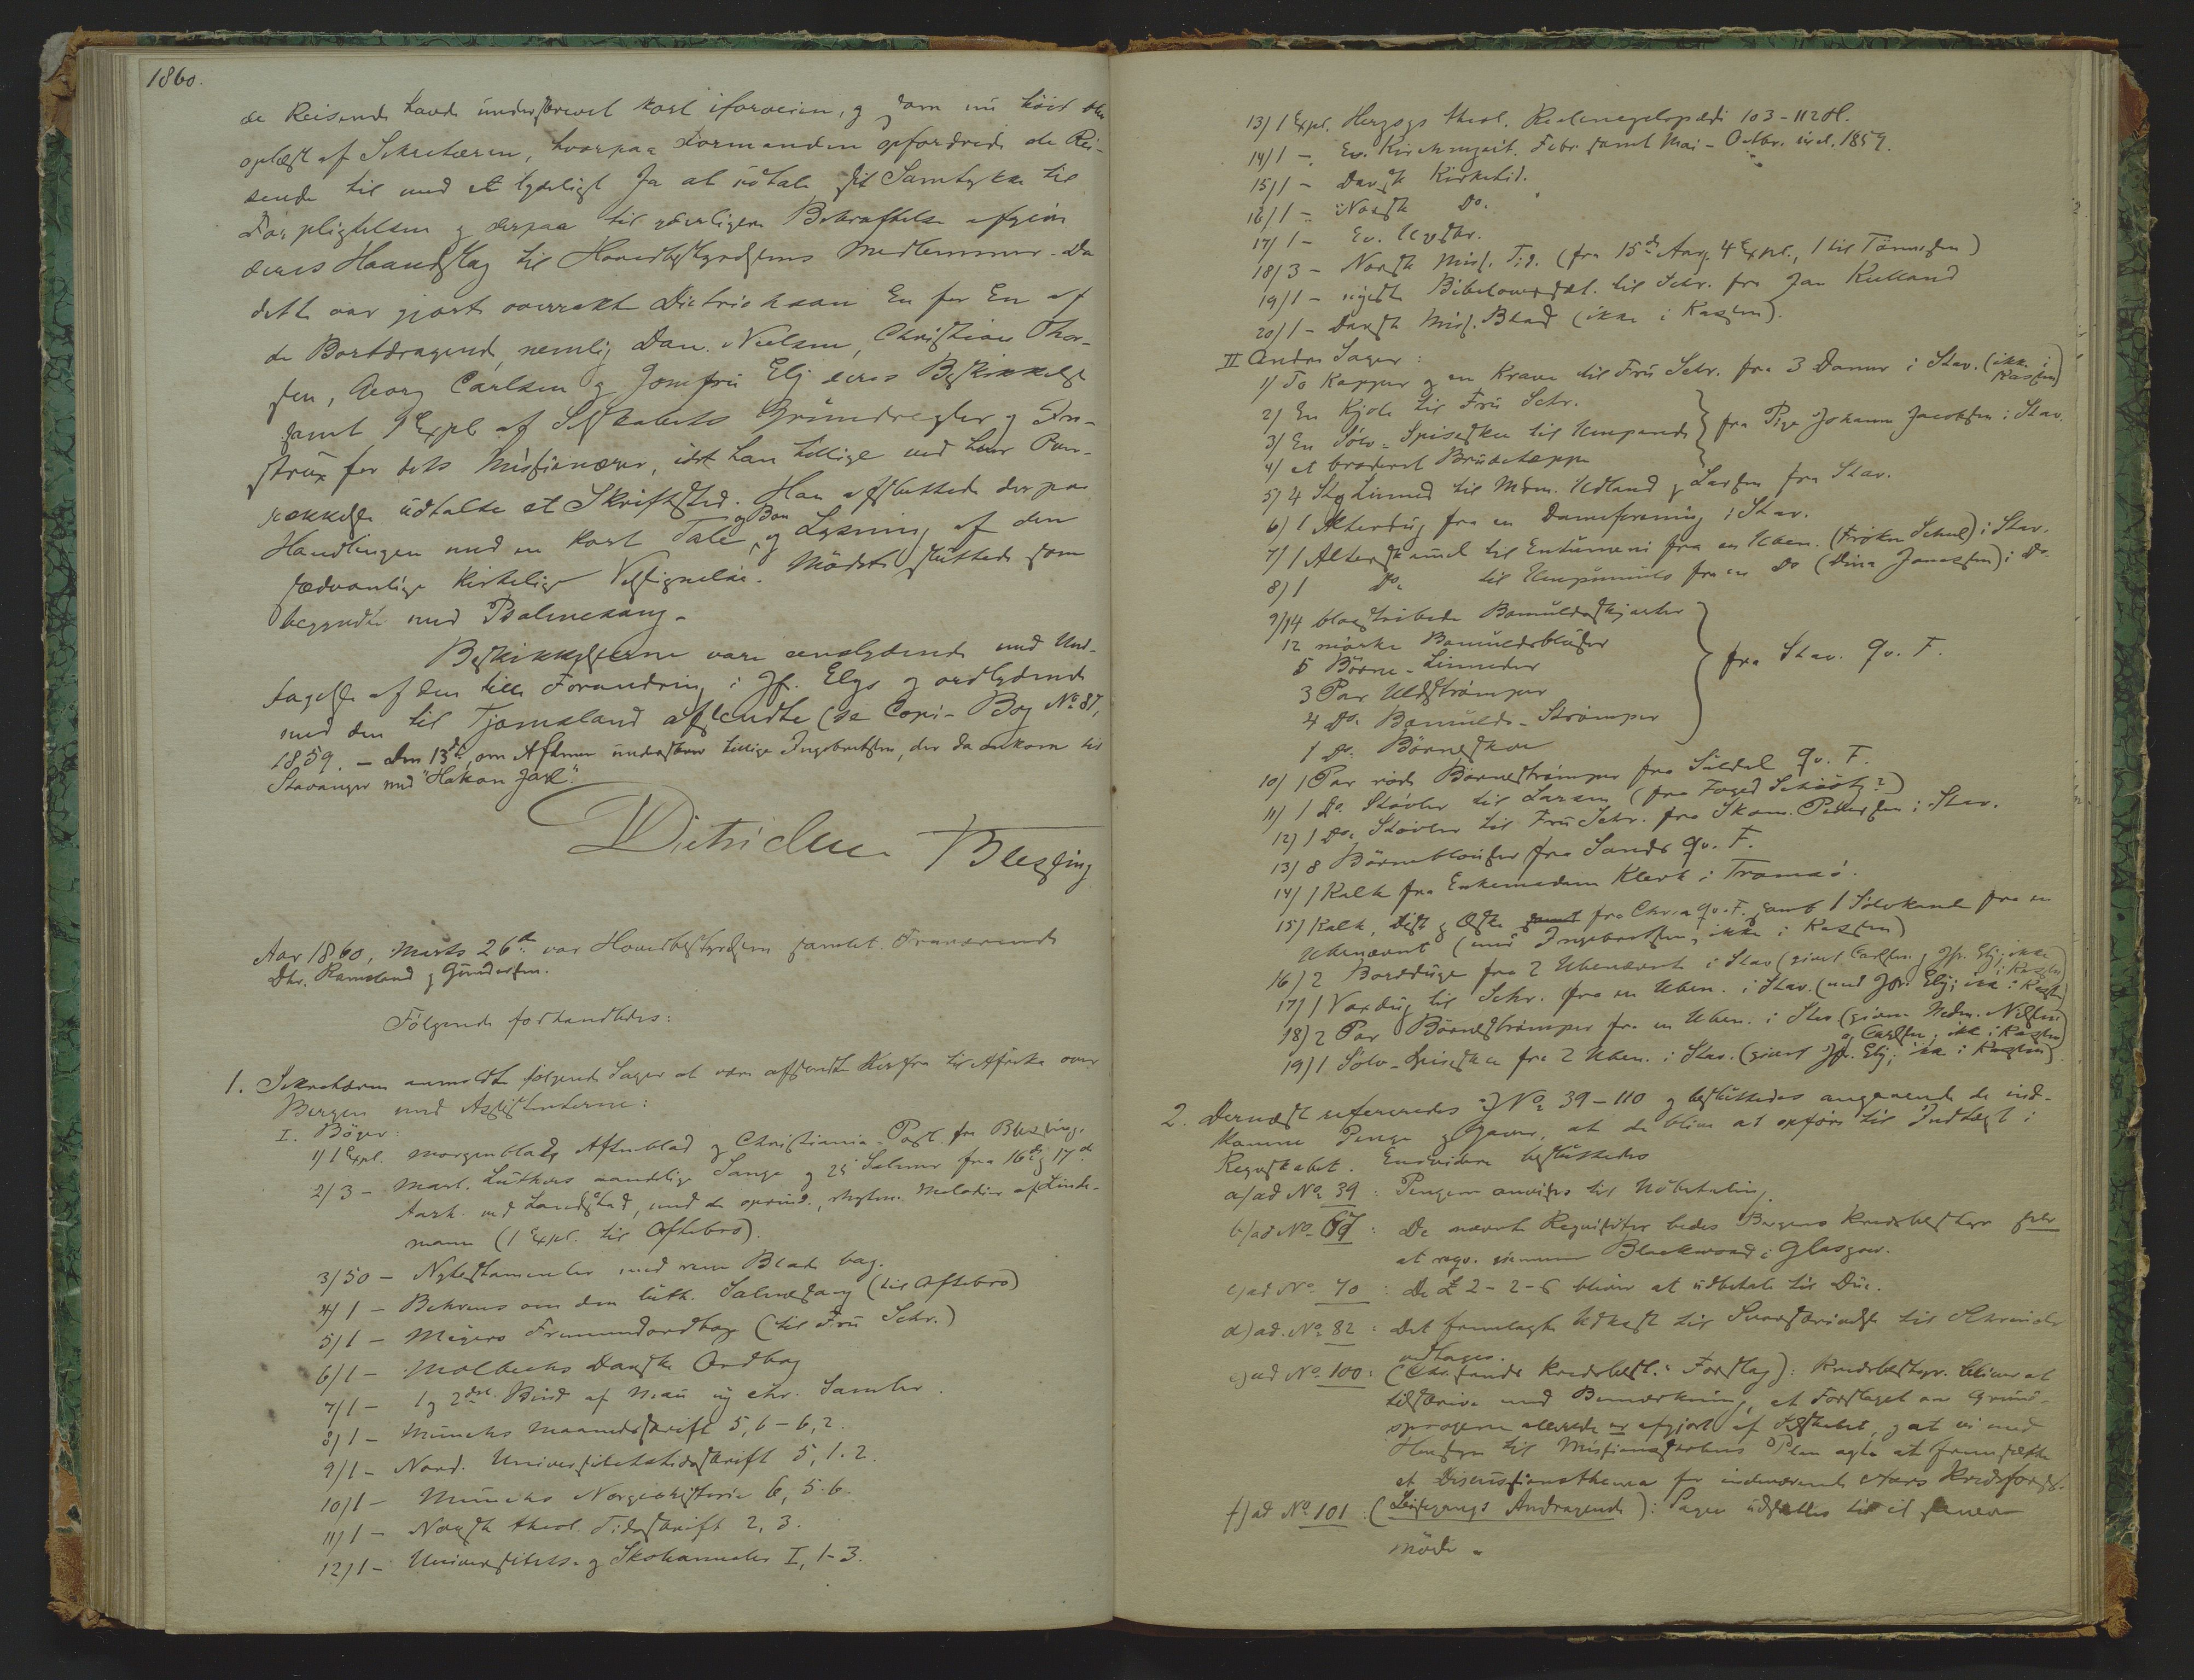 1860.
de Reisende havde underskrevet kort iforveien, og som nu blev
oplæst af Sekretæren, hvorpaa Formanden opfordrede de Rei-
sende til med et lydeligt Ja at udtale sit Samtykke til
Forpligtelsen og derpaa til yderligere Bekræftelse afgive
deres Haandslag til Hovedbestyrelsens Medlemmer. Da
dette var gjort overrakte Dietrichson En for En af
de Bortdragende, nemlig Dan. Nielsen, Christian Thor-
sen, Georg Carlsen og Jomfru Elj deres Beskikkelse
samt 1 Expl. af Selskabets Grundregler og In-
strux for dets Missionærer, idet han tillige ved hver Over-
rækkelse udtalte et Skriftsted. Han afsluttede derpaa
Handlingen med en kort Tale og Bøn og Lysning af den
sædvanlige kirkelige Velsignelse. Mødet sluttede som
begyndte med Psalmesang.
Beskikkelserne vare enslydende med Und-
tagelse af den lille Forandring i Jfr. Eljs og ordlydende
med den til Tjomsland afsendte (se Copi-Bog No 87,
1859. – Den 13de om Aftenen underskrev tillige Ingebretsen, der da ankom til
Stavanger med "Hakon Jarl".
Dietrichson Blessing
Aar 1860, Marts 26de var Hovedbestyrelsen samlet. Fraværende
Dhr. Ramsland og Gundersen.
Følgende forhandledes:
1. Sekretæren anmeldte følgende Sager at være afsendte herfra til Afrika over
Bergen med Assistenterne:
I. Bøger:
1) 1 Expl. Morgenblad, Aftenblad og Christiania-Post fra Blessing.
2) 3 – Mart. Luthers aandelige Sange og 25 Salmer fra 16de og 17de
Aarh. ved Landstad, med de oprind., rhytm. Melodier af Linde-
mann (1 Expl. til Oftebro).
3) 50 – Nytestamenter med rene Blade bag.
4) 1 – Behrens om den luth. Salmesang (til Oftebro)
5) 1 – Meyers Fremmedordbog (til Fru Schr.)
6) 1 – Molbechs Danske Ordbog
7) 1 – 1 og 2det Bind af Mau ny chr. Samler.
8) 1 – Munchs Maanedsskrift 5, 6 – 6, 2.
9) 1 – Nord. Universitetstidsskrift 5, 1. 2.
10) 1 – Munchs Norgeshistorie 6, 5. 6.
11) 1 – Norsk theol. Tidsskrift 2, 3.
12) 1 – Universitets- og Skoleannaler I, 1-3.
13) 1 Expl. Herzogs theol. Realencyclopædi 103 – 112 H.
14) 1 – Ev. Kirchenzeit. Febr. samt Mai – Octbr. incl. 1859.
15) 1 – Dansk Kirketid.
16) 1 – Norsk Do.
17) 1 – Ev. Ugebr.
18) 3 – Norsk Miss. Tid. (fra 15de Aarg. 4 Expl., 1 til Tønnesen)
19) 1 – nyeste Bibeloversæt. til Schr. fra Jan Kielland
20) 1 – Dansk Miss. Blad (ikke i Kassen).
II Andre Sager:
1) To Kapper og en Krave til Fru Schr. fra 3 Damer i Stav. (ikke i Kassen)
2) En Kjole til Fru Schr.
3) En Sølv-Spiseskee til Umpande
4) et broderet Brudetæppe
fra Pige Johanne Jacobsen i Stav.
5) 4 Stk Linned til Mdm. Udland og Larsen fra Stav.
6) 1 Alterdug fra en Dameforening i Stav.
7) 1 Alterskammel til Entumeni fra en Uben. (Frøken Schul) i Stav.
8) 1 Do. til Umpumulo fra en Do (Dina Jonassen) i Do.
9) 14 blaastribede Bomuldsskjorter
12 mørke Bomuldsbluser
5 Børne-Linneder
3 Par Uldstrømper
4 Do. Bomulds-Strømper
1 Do. Børnesko
fra Stav. Qv. F.
10) 1 Par røde Børnestrømper fra Suldal Qv. F.
11) 1 Do. Støvler til Larsen (fra Foged Schiøtz?)
12) 1 Do. Støvler til Fru Schr. fra Skom. Pedersen i Stav.
13) 8 Børneblouser fra Sands Qv. F.
14) 1 Kalk fra Enkemadam Klerk i Tromsø.
15) Kalk, Disk og Æske fra Chr.a Qv. F. samt 1 Sølvkande fra en
Ubenævnt (med Ingebretsen, ikke i Kassen)
16) 2 Bordduge fra 2 Ubenævnte i Stav (givet Carlsen og Jfr. Elj; ikke i Kassen)
17) 1 Voxdug til Schr. fra en Uben. i Stav. (med Jfr. Elj; ikke i Kassen)
18) 2 Par Børnestrømper fra en Uben. i Stav (given Mdm. Nielsen
og Carlsen, ikke i Kassen)
19) 1 Sølv-Spiseskee fra 2 Uben. i Stav. (givet Jfr. Elj; ikke i Kassen).
2. Dernæst refereredes J No 39 – 110 og besluttedes angaaende de ind-
komne Penge og Gaver, at de blive at opføre til Indtægt i
Regnskabet. Endvidere besluttedes
a) ad No 39: Pengene anvises til Udbetaling.
b) ad No 67: De nævnte Requisiter bedes Bergens Kredsbestyr selv
at reqv. gjennem Blackwood i Glasgow.
c) ad No 70: De £ 2 – 2 – 6 bliver at udbetale til Due.
d) ad No 82: Det fremlagte Udkast til Svarskrivelse til Schreuder
vedtages.
e) ad No 100: (Chr.sands Kredsbest.s Forslag): Kredsbestyr. bliver at
tilskrive med Bemærkning, at Forslaget om Grund-
sprogene allerede er afgjort af Selskabet, og at vi med
Hensyn til Missionsskolens Plan agte at fremsætte
et Discussionsthema for indeværende Aars Kredsfors.
f) ad No 101: (Leisegangs Andragende): Sagen udsættes til et senere
Møde.